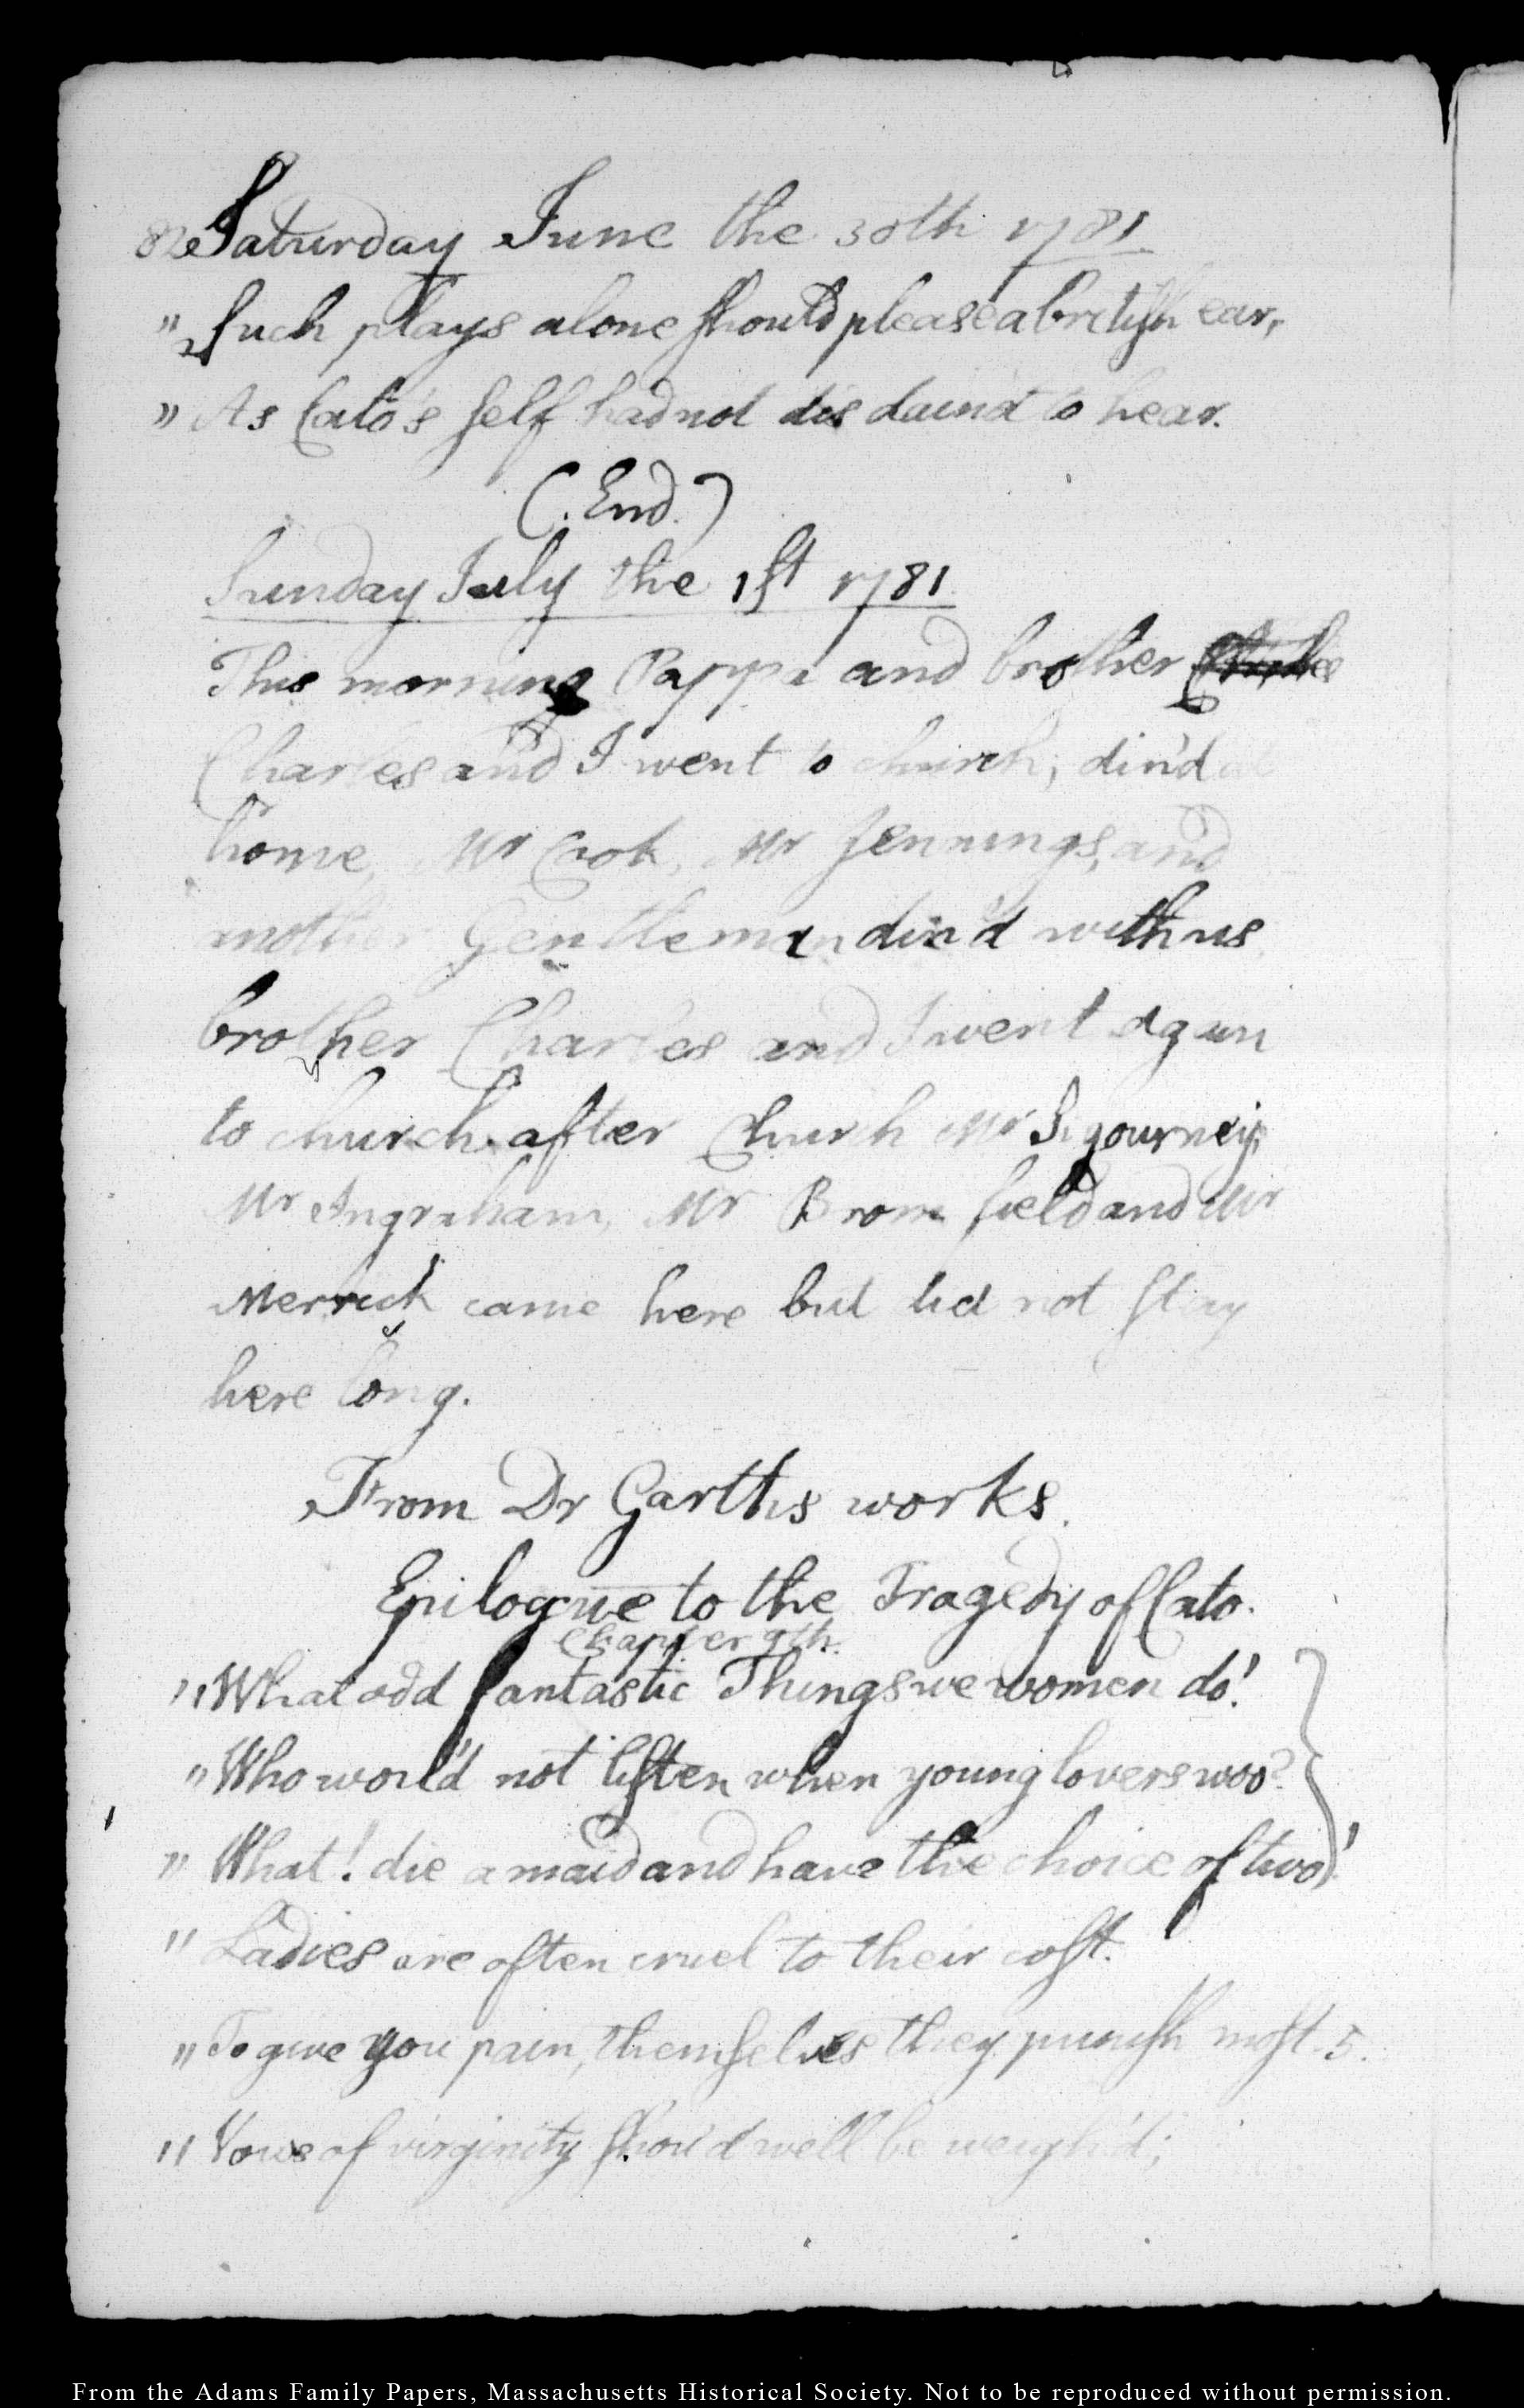 82 Saturday June the 30th 1781
" Such plays alone should please a british ear,
" As Cato's self had not disdain'd to hear.
(. End.)
Sunday July the 1st 1781
This morning Pappa and brother
Charles and I went to church; din'd at
home, Mr Cook, Mr Jennings, and
another Gentleman din'd with us
brother Charles and I went again
to church. after Church Mr Sigourney,
Mr Ingraham, Mr Bromfield and Mr
Merrick came here but did not stay
here long.
From Dr Garths works.
Epilogue to the Tragedy of Cato.
Chapter 9th.
" What odd fantastic Things we women do!
" Who wou'd not listen when young lovers woo?
" What! die a maid and have the choice of two!
" Ladies are often cruel to their cost.
" To give you pain, themselves they punish most. 5.
" Vows of virginity shou'd well be weigh'd;
From the Adams Family Papers, Massachusetts Historical Society. Not to be reproduced without permission.